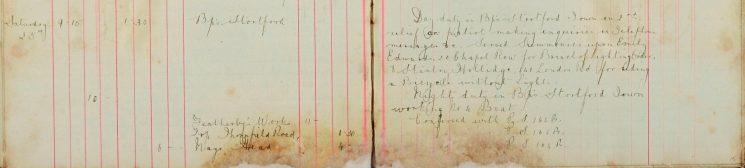 Saturday 9-10 1-30 Bp's Stortford
23rd
10
Featherby's Works 11 -
Top Thornfield Road, 1-30
6 - Hays Head 4
Day duty in Bp's Stortford Town on 2nd
relief (on patrol making enquiries is Telephone
messages &c. Served Summonses upon Emily
Edwards 22 Chapel Row for
& Stanley London Rd for riding
a Bicycle without lights.
Night duty in Bp's Stortford Town
working No 4 Beat
Conferred with P.S.
P.S.
P.S.